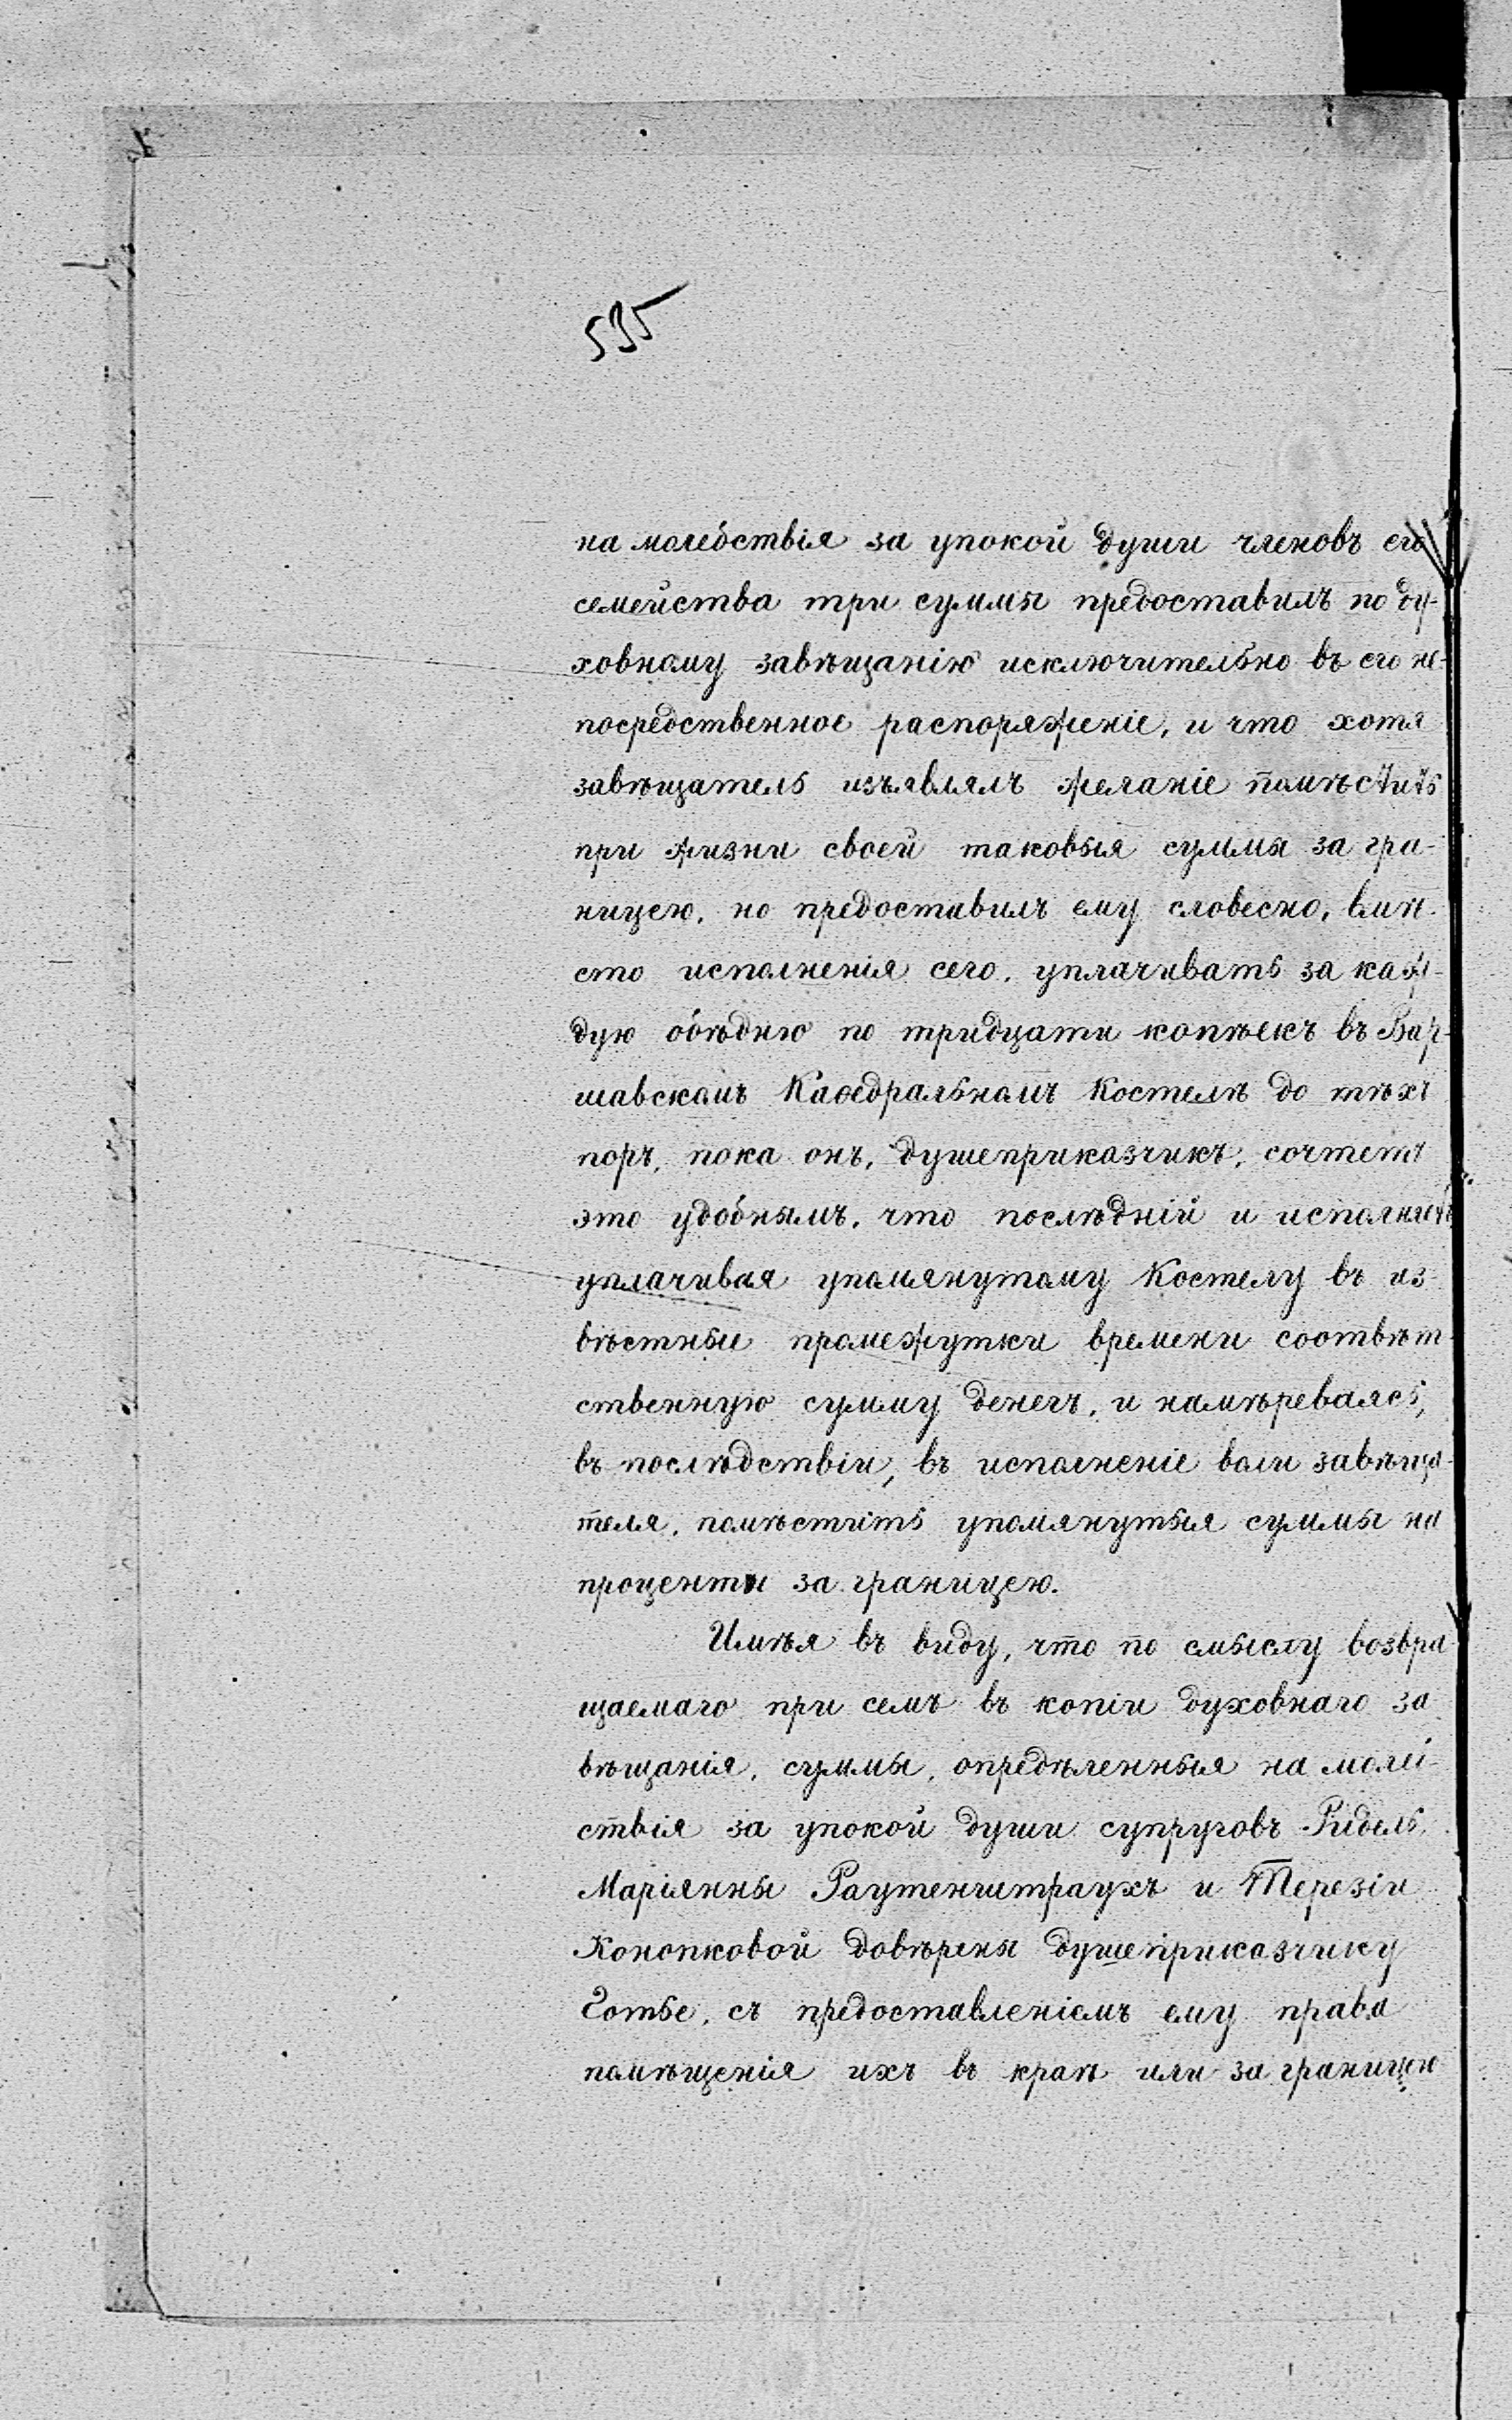 535
на молебствія за упокой души членовъ его
семейства три суммы предоставилъ по ду-
ховному завѣщанію исключительно въ его не-
посредственное распоряженіе, и что хотя
завѣщатель изъявлялъ желаніе помѣстить
при жизни своей таковыя суммы за гра-
ницею, но предоставилъ ему словесно, вмѣ-
сто исполненія сего, уплачивать за каж-
дую обѣдню по тридцати копѣекъ въ Вар-
шавскомъ Каѳедральномъ Костелѣ до тѣхъ
поръ, пока онъ, душеприказчикъ, сочтетъ
это удобнымъ, что послѣдній и исполнилъ
уплачивая упомянутому Костелу въ из-
вѣстные промежутки времени соотвѣт-
ственную сумму денегъ, и намѣреваясь,
въ послѣдствіи, въ исполненіе воли завѣща-
теля, помѣстить упомянутыя суммы на
проценты за границею.
Имѣя въ виду, что по смыслу возвра-
щаемаго при семъ въ копіи духовнаго за
вѣщанія, суммы, опредѣленныя на молеб-
ствія за упокой души супруговъ Ридель,
Маріянны Раутенштраухъ и Терезіи
Конопковой довѣрены душеприказчику
Готье, съ предоставленіемъ ему права
помѣщенія ихъ въ краѣ или за границею